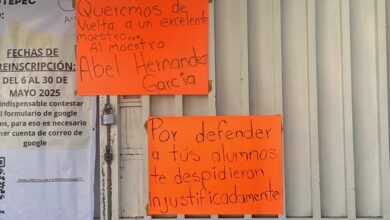 TEPEC
FECHAS DE
REINSCRIPCIÓN:
DEL 6 AL 30 DE
MAYO 2025
indispensable contestar
el formulario de google
para eso es necesario
ner cuenta de correo de
google
Queremos de
vuelta a un excelente
maestro...
Al maestro
Abel Hernandez
García
Por defender
a tús alumnos
te despidieron
injustificadamente